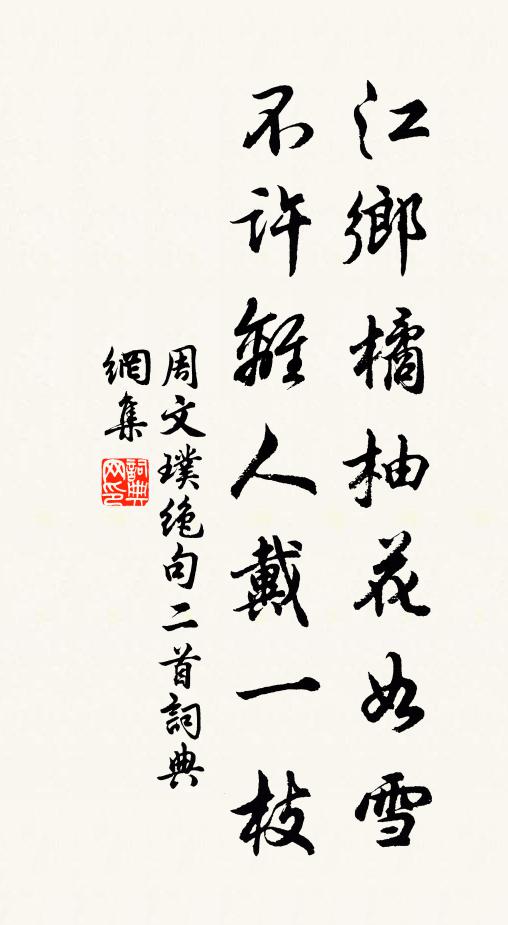 江鄉橘柚花如雪
不許離人戴一枝
周文璞絕句二首詞典
網集
詞典网印